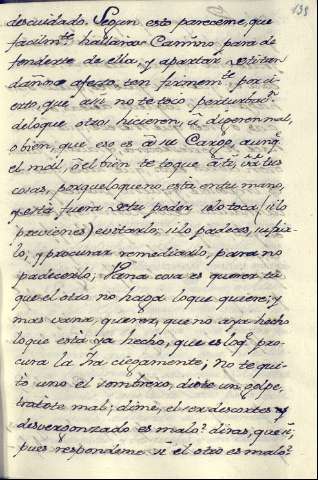 139
descuidado. Segun esto pareceme, que
facilm.te hallarias Camino para de
fenderte de ella, y apartar de ti tan
dañoso afecto, ten firmem.te por ci-
erto, que à ti no te toca perturbar.
de lo que otros hicieren, ù dijeren mal,
o bien, que eso es à su Cargo, aunq.
el mal, ò el bien te toque à ti, ù à tus
cosas, porque lo que no està en tu mano,
y està fuera de tu poder solo toca (si lo
previenes) evitarlo; si lo padeces, sufrir-
lo; y procurar remediarlo, para no
padecerlo; Vana cosa es querer tu
que el otro no haga lo que quiere; y
mas vana, querer, que no aya hecho
lo que està ya hecho, que es loq. pro-
cura la Ira ciegamente; no te qui-
tò uno el sombrero, diote un golpe,
tratote mal; dime, el ser descortes y
desvergonzado es malo? diras, que si,
pues respondeme si el otro es malo?